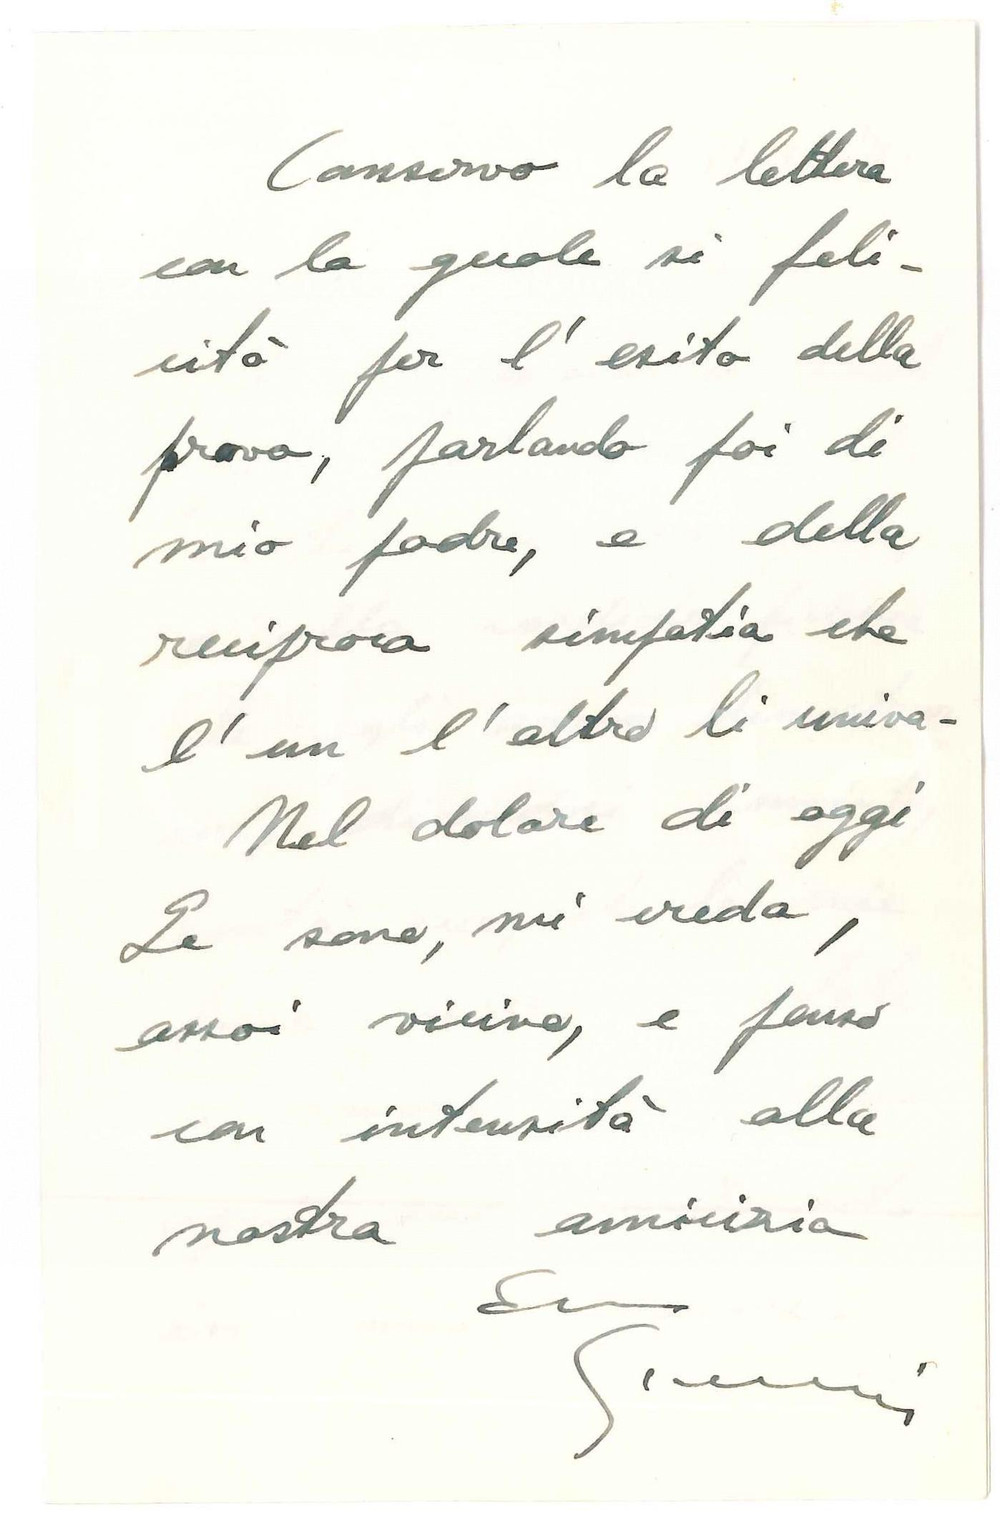 Conservo la lettera
con la quale si feli-
citò per l'esito della
prova, parlando poi di
mio padre, e della
reciproca simpatia che
l'un l'altro li univa-
Nel dolore di oggi
Le sono, mi creda,
assai vicino, e penso
con intensità alla
nostra amicizia